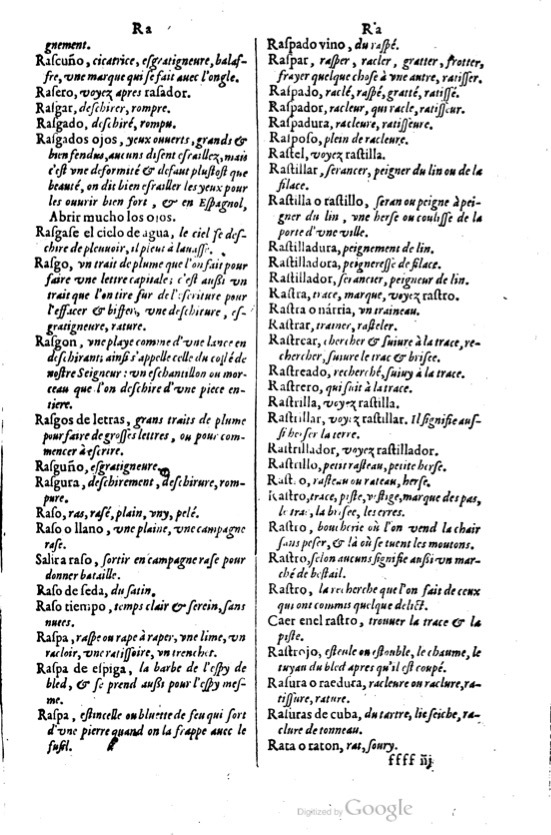 Ra
gnement.
Rascuño, cicatrice, esgratigneure, balaf-
fre, vne marque qui se fait auec l'ongle.
Rasero, voyez apres rasador.
Rasgar, deschirer, rompre.
Rasgado, deschiré, rompu.
Rasgados ojos, yeux ouuerts, grands &
bien fendus, aucuns disent esraillez, mais
c'est vne deformité & defaut plustost que
beauté, on dit bien esrailler les yeux pour
les ouurir bien fort, & en Espagnol,
Abrir mucho los ojos.
Rasgase el cielo de agua, le ciel se des-
chire de pleuuoir, il pleut à lauasse.
Rasgo, vn trait de plume que l'on fait pour
faire vne lettre capitale; c'est aussi vn
trait que l'on tire sur de l'escriture pour
l'effacer & biffer, vne deschiure, es-
gratigneure, rature.
Rasgon, vne playe comme d'vne lance en
deschirant; ainsi s'appelle celle du costé de
nostre Seigneur: vn eschantillon ou mor-
ceau que l'on deschire d'vne piece en-
tiere.
Rasgos de letras, grans traits de plume
pour faire de grosses lettres, ou pour com-
mencer à escrire.
Rasguño, esgratigneure.
Rasgura, deschirement, deschirure, rom-
pure.
Raso, ras, rasé, plain, vny, pelé.
Raso o llano, vne plaine, vne campagne
rase.
Salir a raso, sortir en campagne rase pour
donner bataille.
Raso de seda, du satin.
Raso tiempo, temps clair & serein, sans
nuees.
Raspa, raspe ou rape à raper, vne lime, vn
racloir, vne ratissoire, vn trenchet.
Raspa de espiga, la barbe de l'espy de
bled, & se prend aussi pour l'espy mes-
me.
Raspa, estincelle ou bluette de feu qui sort
d'vne pierre quand on la frappe auec le
fusil.
Ra
Raspado vino, du raspé.
Raspar, rasper, racler, gratter, frotter,
frayer quelque chose à vne autre, ratisser.
Raspado, raclé, raspé, gratté, ratissé.
Raspador, racleur, qui racle, ratisseur.
Raspadura, racleure, ratisseure.
Rasposo, plein de racleure.
Rastel, voyez rastilla.
Rastillar, serancer, peigner du lin ou de la
filace.
Rastilla o rastillo, seran ou peigne à pei-
gner du lin, vne herse ou coulisse de la
porte d'vne ville.
Rastilladura, peignement de lin.
Rastilladora, peigneresse de filace.
Rastillador, serancier, peigneur de lin.
Rastra, trace, marque, voyez rastro.
Rastra o nàrria, vn traineau.
Rastrar, trainer, rasteler.
Rastrear, chercher & suiure à la trace, re-
chercher, suiure le trac & brisee.
Rastreado, recherché, suiuy à la trace.
Rastrero, qui suit à la trace.
Rastrilla, voyez rastilla.
Rastrillar, voyez rastillar. Il signifie aus-
si herser la terre.
Rastrillador, voyez rastillador.
Rastrillo, petit rasteau, petite herse.
Rastro, rasteau ou rateau, herse.
Rastro, trace, piste, vestige, marque des pas,
le trac, la brisee, les erres.
Rastro, boucherie où l'on vend la chair
sans peser, & là où se tuent les moutons.
Rastro, selon aucuns signifie aussi vn mar-
ché de bestail.
Rastro, la recherche que l'on fait de ceux
qui ont commis quelque delict.
Caer en el rastro, trouuer la trace & la
piste.
Rastrojo, esteule ou estouble, le chaume, le
tuyau du bled apres qu'il est coupé.
Rasura o raedura, racleure ou raclure, ra-
tissure, rature.
Rasuras de cuba, du tartre, lie seiche, ra-
clure de tonneau.
Rata o raton, rat, soury.
ffff iij
Digitized by Google